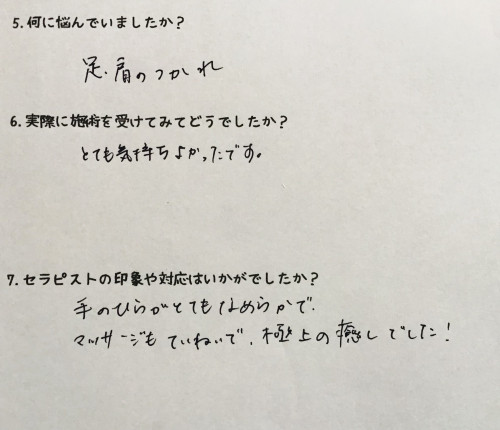 5. 何に悩んでいましたか？
足、肩のつかれ
6. 実際に施術を受けてみてどうでしたか？
とても気持ちよかったです。
7. セラピストの印象や対応はいかがでしたか？
手のひらがとてもなめらかで、
マッサージもていねいで、極上の癒しでした！